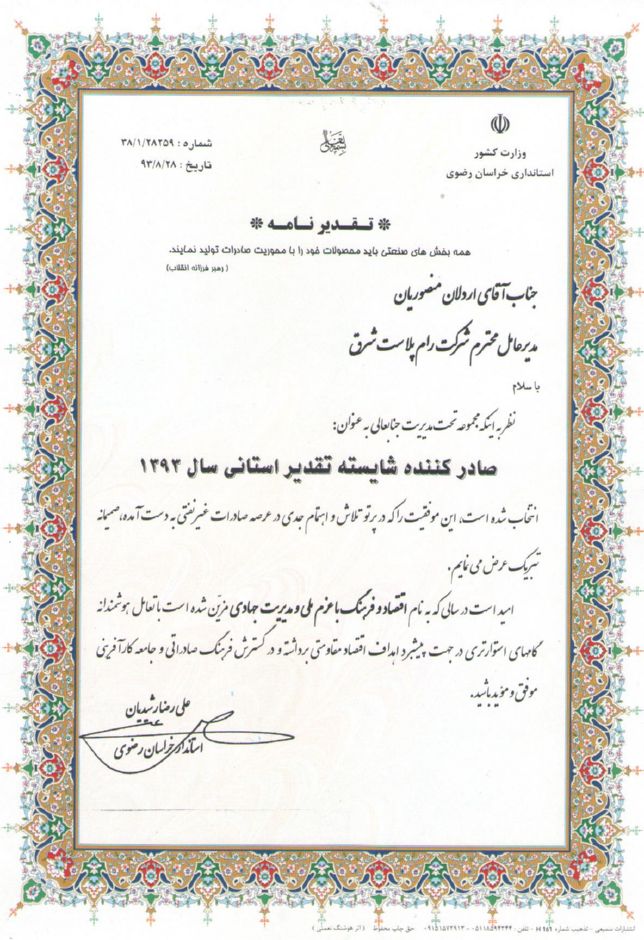 بسمه تعالی
وزارت کشور
استانداری خراسان رضوی
شماره : ۳۸/۱/۲۸۲۵۹
تاریخ : ۹۳/۸/۲۸
* تقدیر نامه *
همه بخش های صنعتی باید محصولات خود را با محوریت صادرات تولید نمایند.
( رهبر فرزانه انقلاب )
جناب آقای اردلان منصوریان
مدیرعامل محترم شرکت رام پلاست شرق
با سلام
نظر به اینکه مجموعه تحت مدیریت جنابعالی به عنوان:
صادر کننده شایسته تقدیر استانی سال ۱۳۹۳
انتخاب شده است، این موفقیت را که در پرتو تلاش و اهتمام جدی در عرصه صادرات غیرنفتی به دست آمده، صمیمانه
تبریک عرض می نمایم.
امید است در سالی که به نام اقتصاد و فرهنگ با عزم ملی و مدیریت جهادی مزین شده است با تعامل هوشمندانه
گامهای استوارتری در جهت پیشبرد اهداف اقتصاد مقاومتی برداشته و در گسترش فرهنگ صادراتی و جامعه کارآفرینی
موفق و مؤید باشید.
علی رضا رشیدیان
استاندار خراسان رضوی
انتشارات سمیعی - تذهیب شماره H ۹۵۶ - تلفن: ۰۵۱۱۸۵۹۴۳۴۴ - ۰۹۱۵۱۵۷۲۹۱۳ حق چاپ محفوظ ( اثر هوشنگ نعمتی )